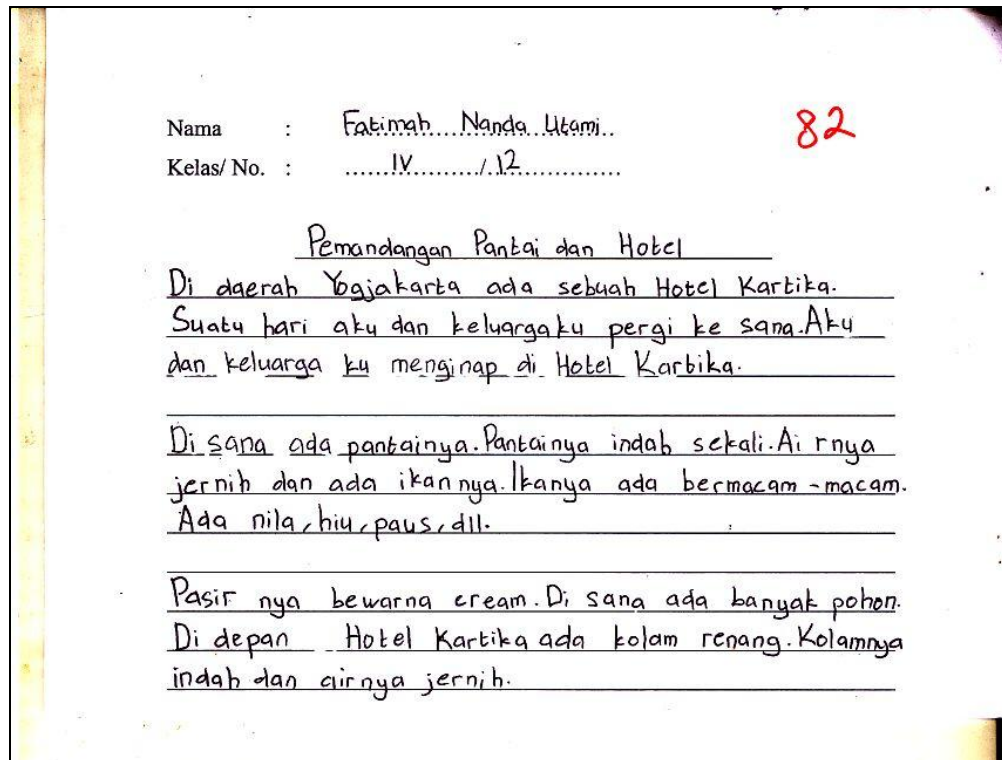 Nama : Fatimah Nanda Utami
82
Kelas/ No. : IV / 12
Pemandangan Pantai dan Hotel
Di daerah Yogjakarta ada sebuah Hotel Kartika.
Suatu hari aku dan keluargaku pergi ke sana. Aku
dan keluarga ku menginap di Hotel Kartika.
Di sana ada pantainya. Pantainya indah sekali. Ai rnya
jernih dan ada ikan nya. Ikanya ada bermacam - macam.
Ada nila, hiu, paus, dll.
Pasir nya bewarna cream. Di sana ada banyak pohon.
Di depan Hotel Kartika ada kolam renang. Kolamnya
indah dan airnya jernih.